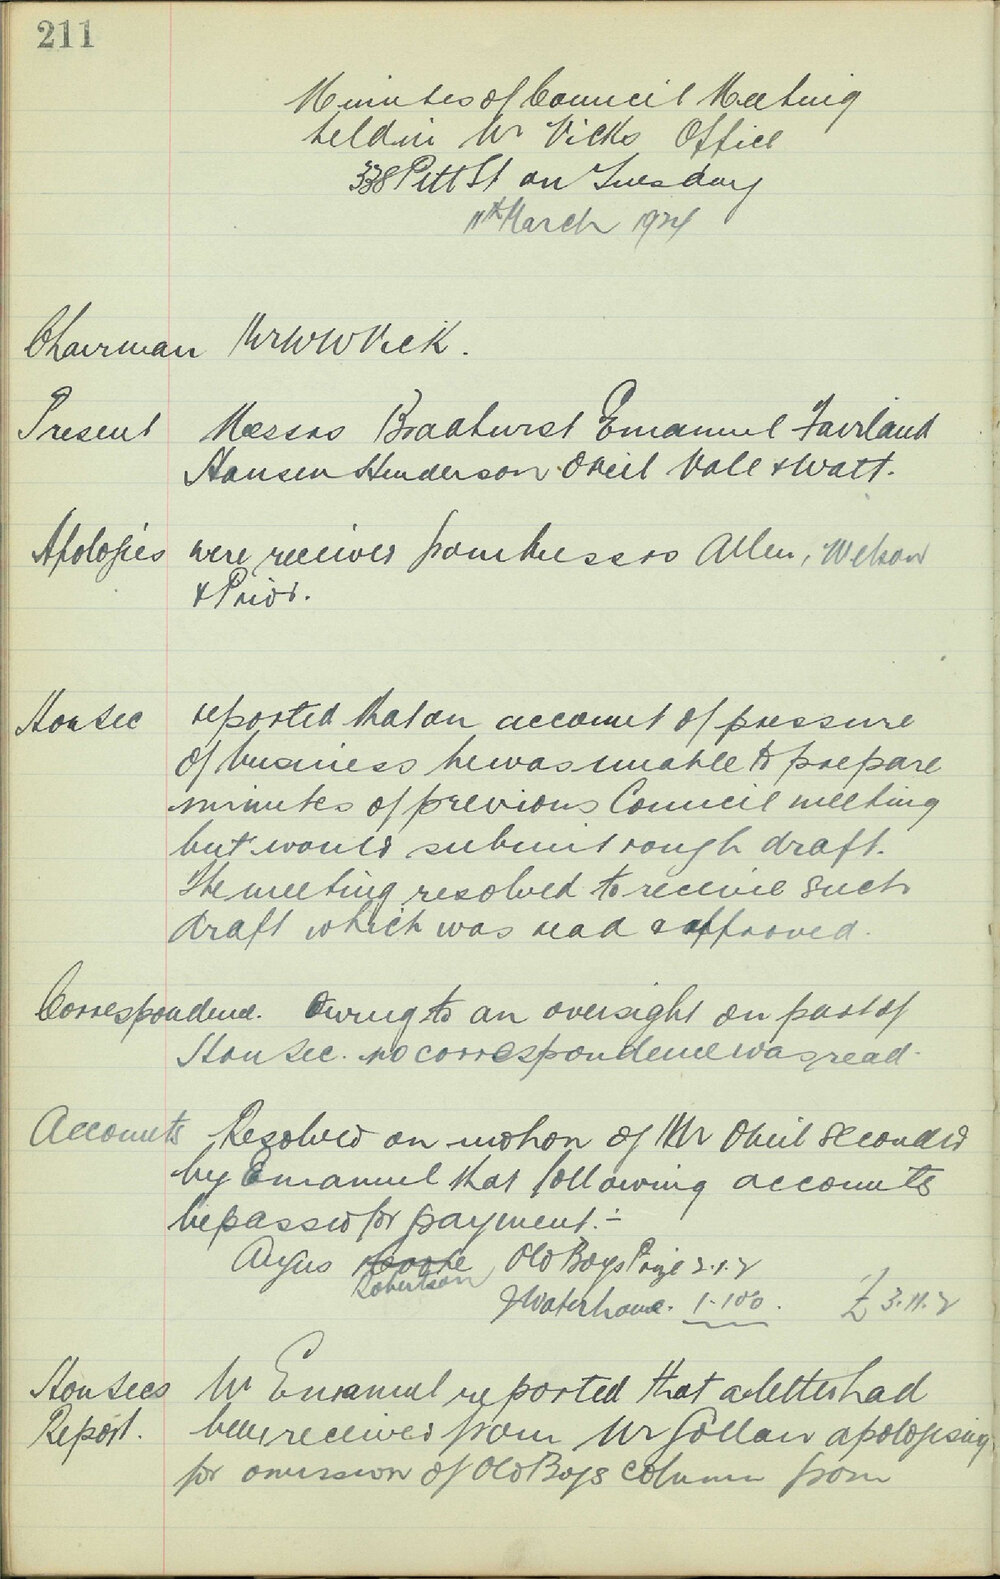 211
Minutes of Council Meeting
held in Mr Vicks Office
338 Pitt St on Tuesday
11th March 1924
Chairman Mr W W Vick.
Present Messrs Broadhurst Emanuel Fairland
Hansen Henderson ONeil Vale & Watt.
Apologies were received from Messrs Allen,
& Prior.
Hon Sec reported that on account of pressure
of business he was unable to prepare
minutes of previous Council meeting
but would submit rough draft.
The meeting resolved to receive such
draft which was read & approved.
Correspondence. Owing to an oversight on part of
Hon Sec. no correspondence was read.
Accounts Resolved on motion of Mr ONeil seconded
by Emanuel that following accounts
be passed for payment:-
Angus Robertson Old Boys Prize 2.1.2
J Waterhouse. 1.10.0. £3.11.2
Hon Secs Mr Emanuel reported that a letter had
Report. been received from Mr Gollan apologising
for omission of Old Boys column from